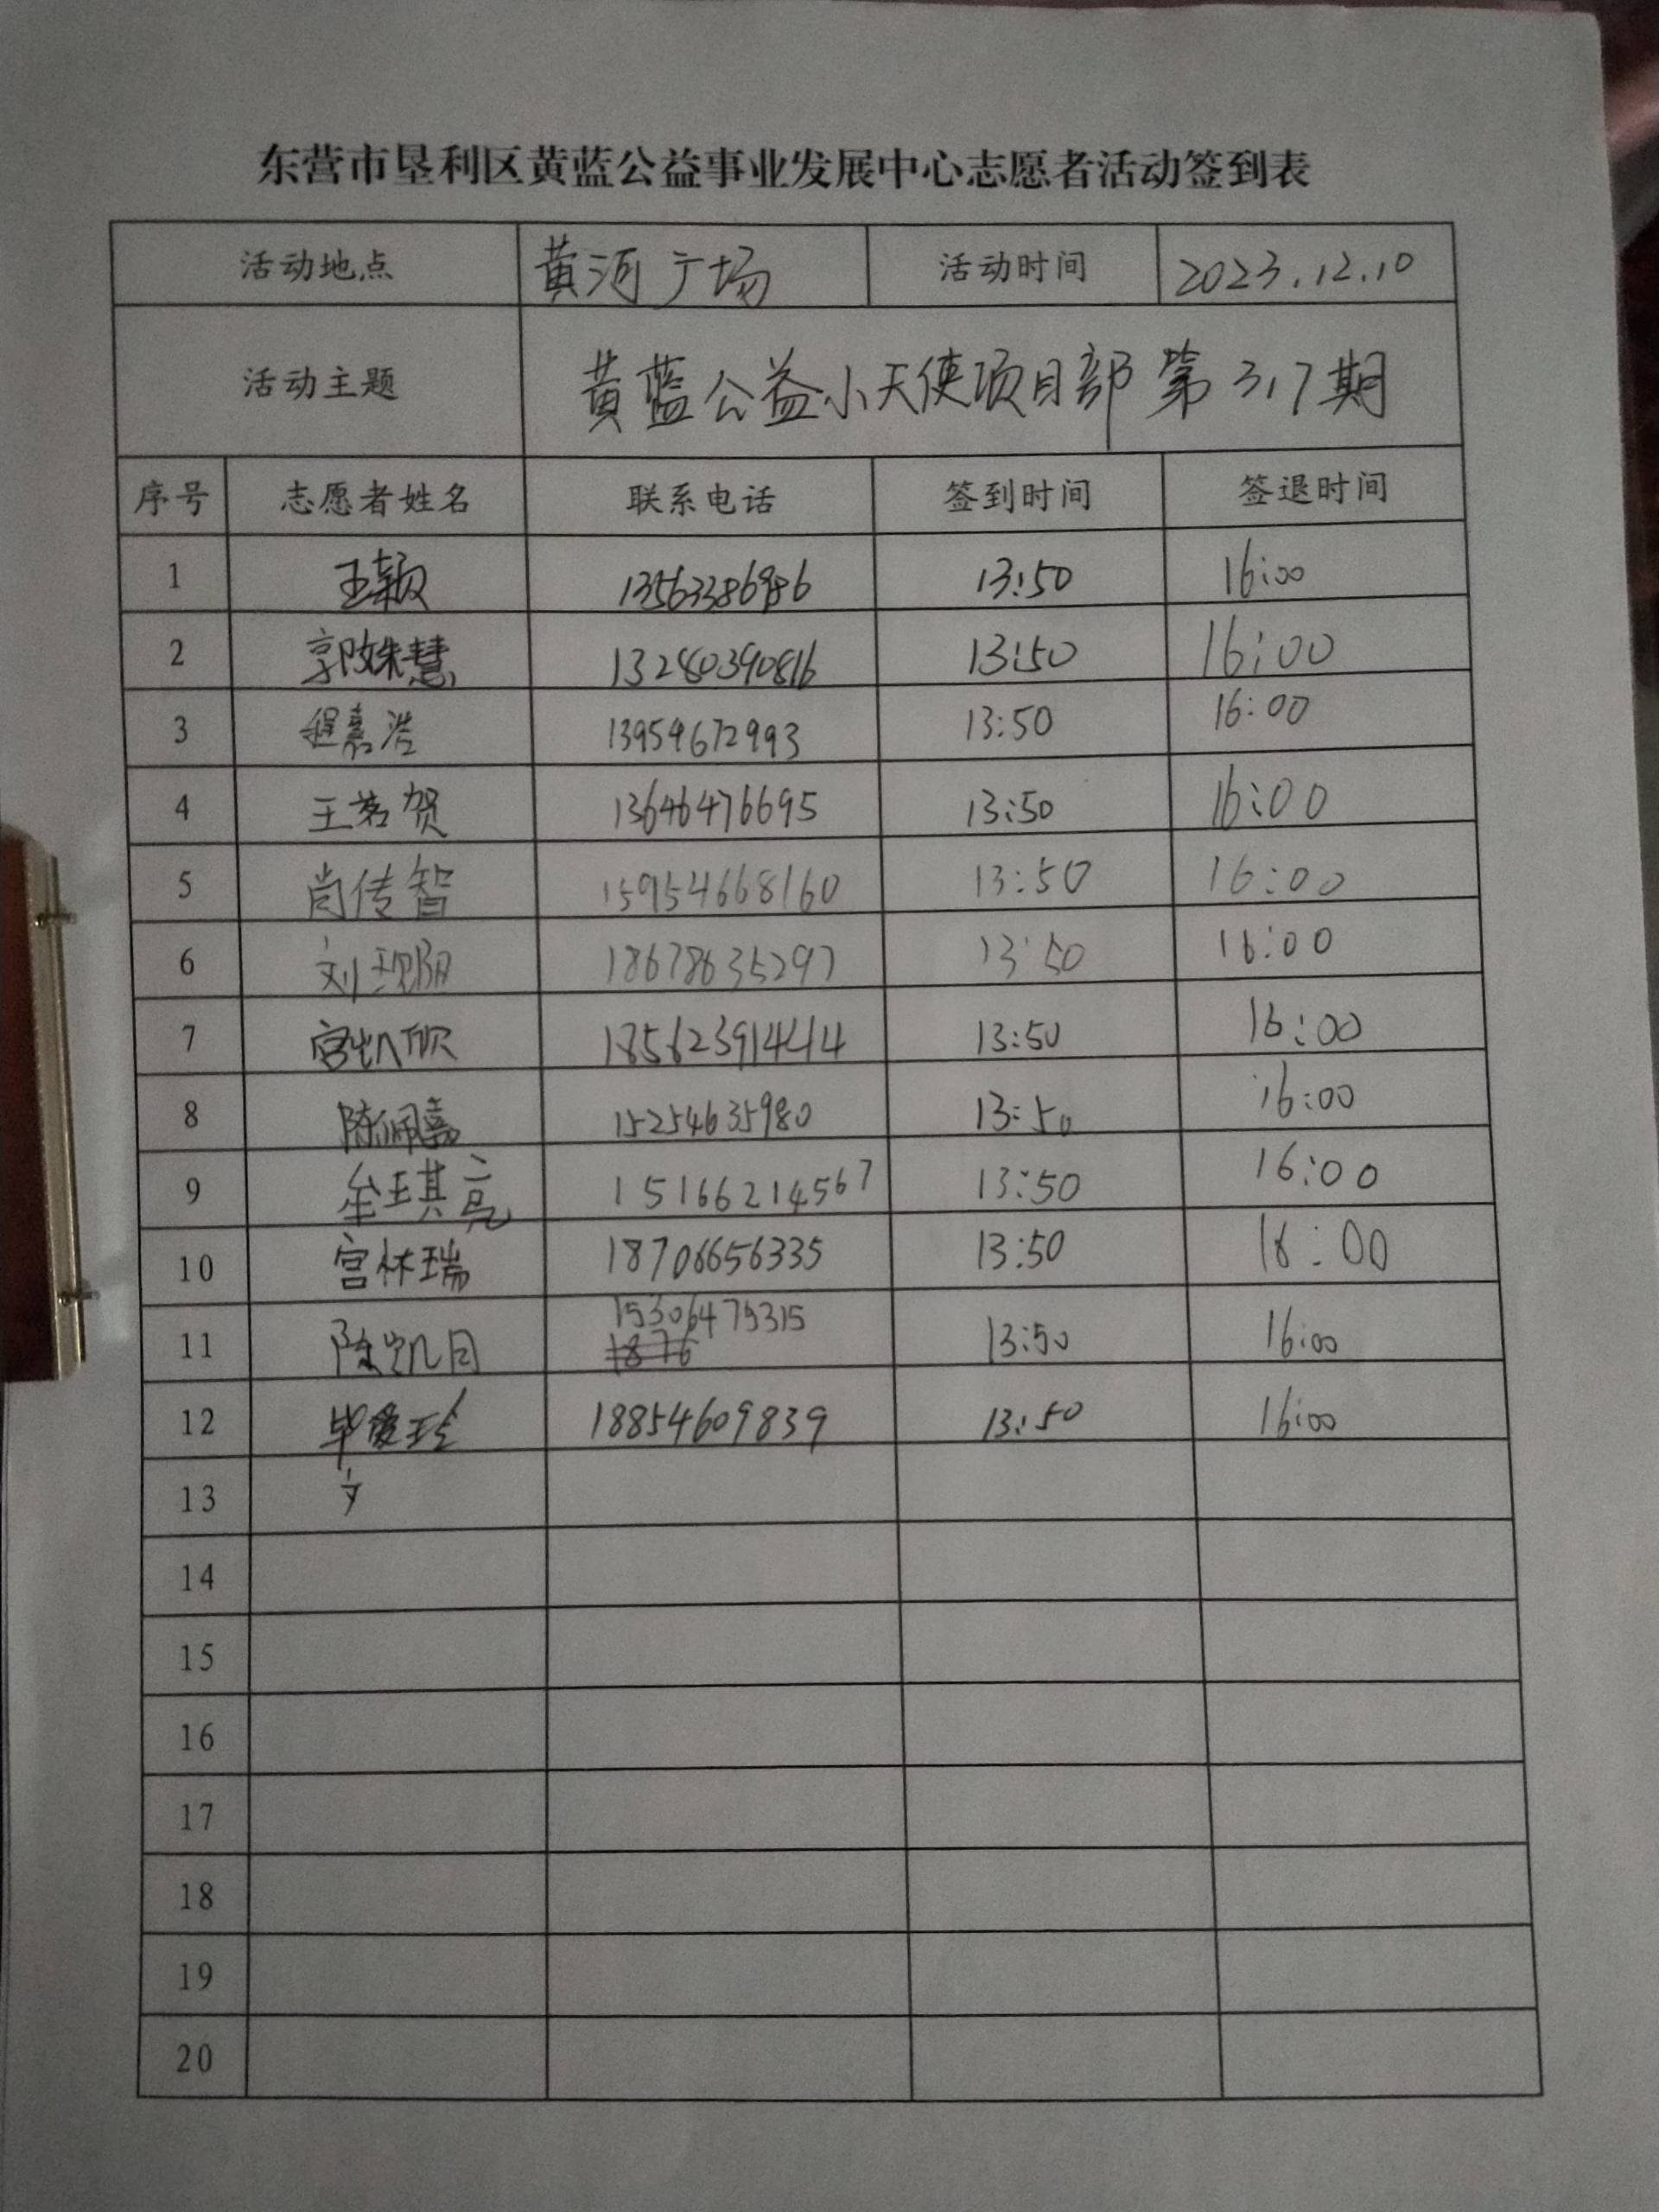 东营市垦利区黄蓝公益事业发展中心志愿者活动签到表
活动地点 黄河广场 活动时间 2023.12.10
活动主题 黄蓝公益小天使项目部第317期
序号 志愿者姓名 联系电话 签到时间 签退时间
1 王颖 13563386986 13:50 16:00
2 郭姝慧 13280390816 13:50 16:00
3 程嘉浩 13959672993 13:50 16:00
4 王茗贺 13646476695 13:50 16:00
5 尚传智 15954668160 13:50 16:00
6 刘 18678635297 13:50 16:00
7 宫凯欣 18562391444 13:50 16:00
8 陈佩嘉 15254635980 13:50 16:00
9 牟琪亮 15166214567 13:50 16:00
10 宫怀瑞 18706656335 13:50 16:00
11 陈凯同 15306475315 13:50 16:00
1876
12 毕爱玲 18854609839 13:50 16:00
13
14
15
16
17
18
19
20